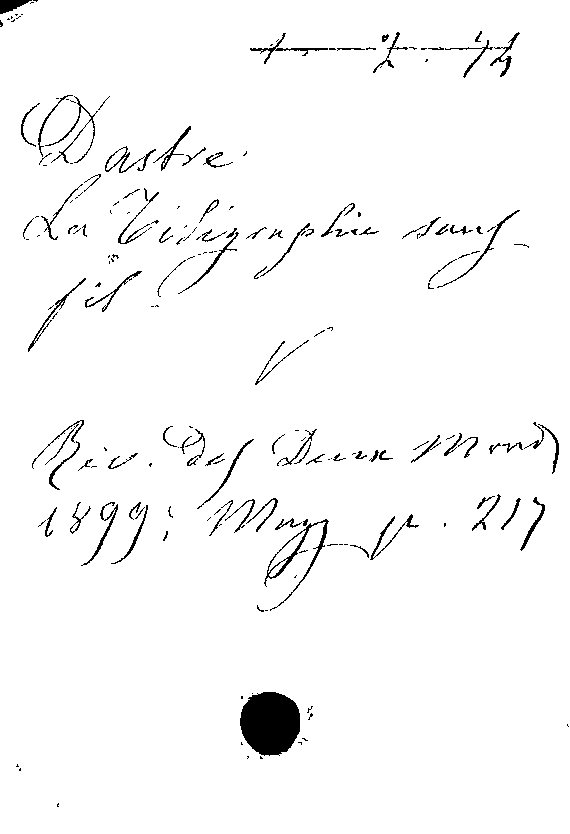 Dastre
La Télégraphie sans
fil
V
Rev. des Deux Mond
1899; Magg p. 217